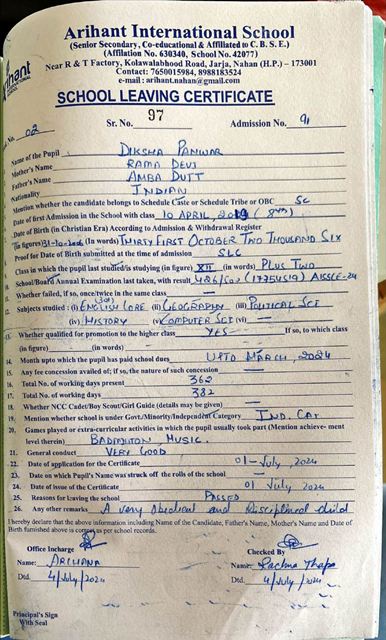 Arihant International School
(Senior Secondary, Co-educational & Affiliated to C. B. S. E.)
(Affiliation No. 630340, School No. 42077)
Near R & T Factory, Kolawalabhood Road, Jarja, Nahan (H.P.) – 173001
Contact: 7650015984, 8988183524
e-mail : arihant.nahan@gmail.com
SCHOOL LEAVING CERTIFICATE
No. 02 Sr. No. 97 Admission No. 91
Name of the Pupil : DIKSHA PANWAR
Mother's Name RAMA DEVI
Father's Name AMBA DUTT
Nationality INDIAN
Mention whether the candidate belongs to Schedule Caste or Schedule Tribe or OBC SC
Date of first Admission in the School with class 10 APRIL, 2019 (8th)
Date of Birth (in Christian Era) According to Admission & Withdrawal Register
(in figures) 31-10-2006 (In words) THIRTY FIRST OCTOBER TWO THOUSAND SIX
Proof for Date of Birth submitted at the time of admission SLC
Class in which the pupil last studied/is studying (in figure) XII (in words) PLUS TWO
School/Board Annual Examination last taken, with result 426/500 (17754519) AISSCE-24
11. Whether failed, if so, once/twice in the same class —
12. Subjects studied : (i) ENGLISH CORE (301) (ii) GEOGRAPHY (iii) POLITICAL SCI
(iv) HISTORY (v) COMPUTER SCI (vi) —
13. Whether qualified for promotion to the higher class YES If so, to which class
(in figure) — (in words) —
14. Month upto which the pupil has paid school dues UPTO MARCH, 2024
15. Any fee concession availed of; if so, the nature of such concession —
16. Total No. of working days present 362
17. Total No. of working days 382
18. Whether NCC Cadet/Boy Scout/Girl Guide (details may be given) —
19. Mention whether school is under Govt./Minority/Independent Category IND. CAT
20. Games played or extra-curricular activities in which the pupil usually took part (Mention achieve- ment
level therein) BADMINTON, MUSIC.
21. General conduct VERY GOOD
22. Date of application for the Certificate 01-July, 2024
23. Date on which Pupil's Name was struck off the rolls of the school —
24. Date of issue of the Certificate 01 July 2024
25. Reasons for leaving the school PASSED
26. Any other remarks A very Obedient and Disciplined child
I hereby declare that the above information including Name of the Candidate, Father's Name, Mother's Name and Date of
Birth furnished above is correct as per school records.
Office Incharge Checked By
Name: ARCHANA Name: Rachna Thapa
Dtd. 4/July/2024 Dtd. 4/July/2024
Principal's Sign
With Seal